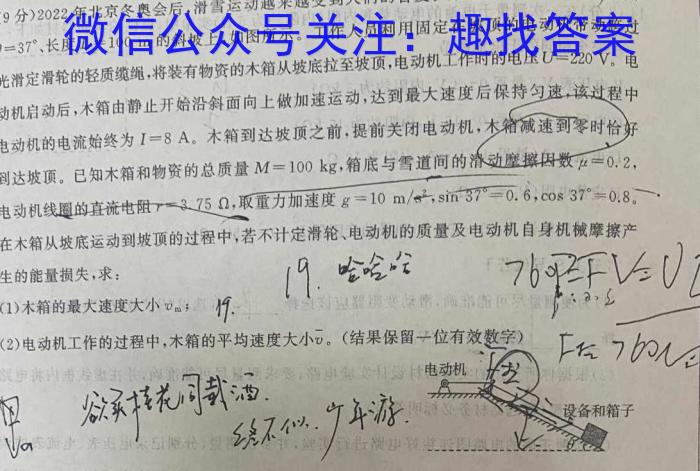 (9分)2022年北京冬奥会后,滑雪运动越来越受到人们的
θ=37°,长度
微信公众号关注:趣找答案
光滑定滑轮的轻质缆绳,将装有物资的木箱从坡底拉至坡顶,电动机工作时的电压U=220 V。电
动机启动后,木箱由静止开始沿斜面向上做加速运动,达到最大速度后保持匀速,该过程中
电动机的电流始终为I=8 A。木箱到达坡顶之前,提前关闭电动机,木箱减速到零时恰好
到达坡顶。已知木箱和物资的总质量M=100 kg,箱底与雪道间的滑动摩擦因数μ=0.2,
电动机线圈的直流电阻r=3.75 Ω,取重力加速度g=10 m/s²,sin 37°=0.6,cos 37°=0.8。
在木箱从坡底运动到坡顶的过程中,若不计定滑轮、电动机的质量及电动机自身机械摩擦产
生的能量损失,求:
19. 哈哈哈
(1)木箱的最大速度大小vₘ;
19.
(2)电动机工作的过程中,木箱的平均速度大小v̄。(结果保留一位有效数字)
电动机
设备和箱子
欲买桂花同载酒.
终不似.. 少年游.